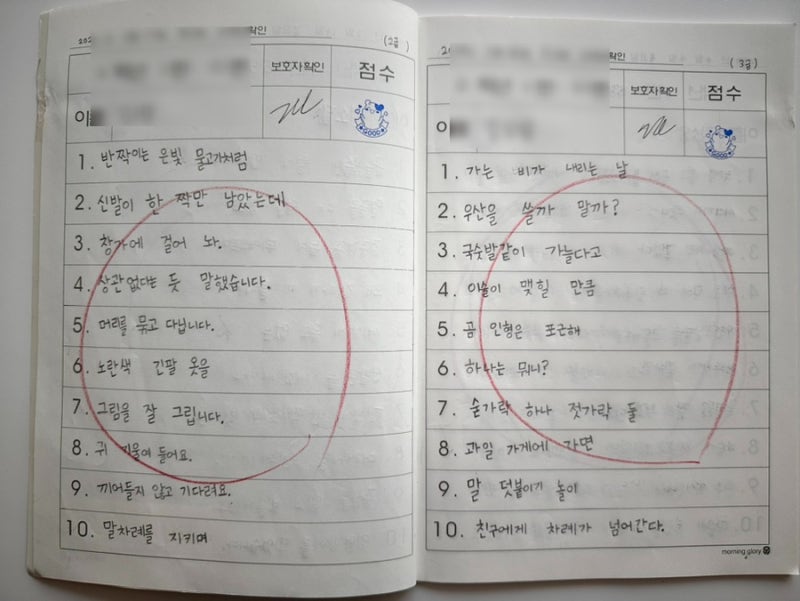 202
확인
(2급)
보호자확인
점수
이
GOOD
1. 반짝이는 은빛 물고기처럼
2. 신발이 한 짝만 남았는데
3. 창가에 걸어 놔.
4. 상관없다는 듯 말했습니다.
5. 머리를 묶고 다닙니다.
6. 노란색 긴팔 옷을
7. 그림을 잘 그립니다.
8. 귀 기울여 들어요.
9. 끼어들지 않고 기다려요.
10. 말차례를 지키며
20
확인
(3급)
보호자확인
점수
이
GOOD
1. 가는 비가 내리는 날
2. 우산을 쓸까 말까?
3. 국숫발같이 가늘다고
4. 이슬이 맺힐 만큼
5. 곰 인형은 포근해
6. 하나는 뭐니?
7. 숟가락 하나 젓가락 둘
8. 과일 가게에 가면
9. 말 덧붙이기 놀이
10. 친구에게 차례가 넘어간다.
morning glory